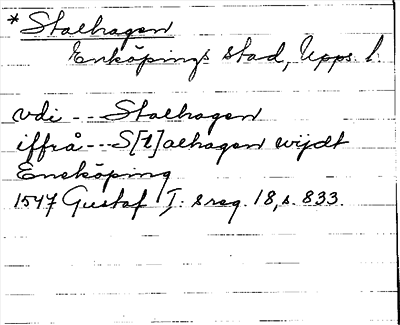 * Stalhagen
Enköpings stad, Upps. l.
vdi --- Stalhagen
iffrå --- S[t]alhagen wijdt
Eneköping
1547 Gustaf I: s reg. 18, s. 833.